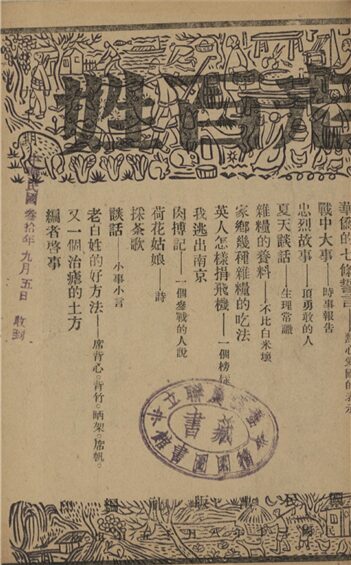 老百姓
華僑的七條誓言——熱心愛國的表示
戰中大事——時事報告
忠烈故事——頂勇敢的人
夏天談話——生理常識
雜糧的養料——不比白米壞
家鄉幾種雜糧的吃法
英人怎樣捐飛機——一個榜樣
我逃出南京
肉搏記——一個參戰的人說
荷花姑娘——詩
採茶歌
談話——小事小言
老百姓的好方法——席背心。背竹。晒架。席帆。
又一個治瘧的土方
編者啓事
民國叁拾年九月五日收到
藏書